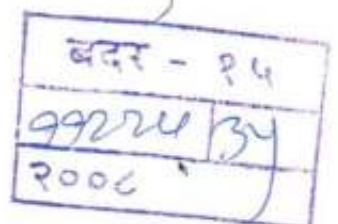 बदर - १५
११२२५ ३५
२००८